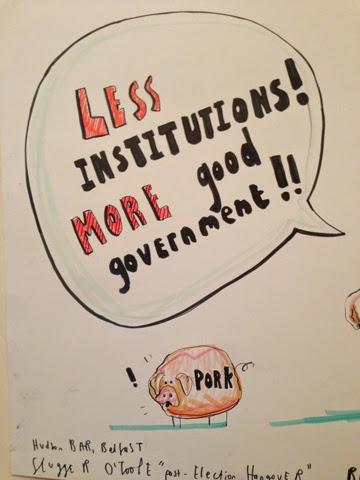 LESS
INSTITUTIONS!
MORE good
government!!
!
PORK
Hudson BAR, Belfast
Slugger O'Toole "post-Election HangoveR"
R